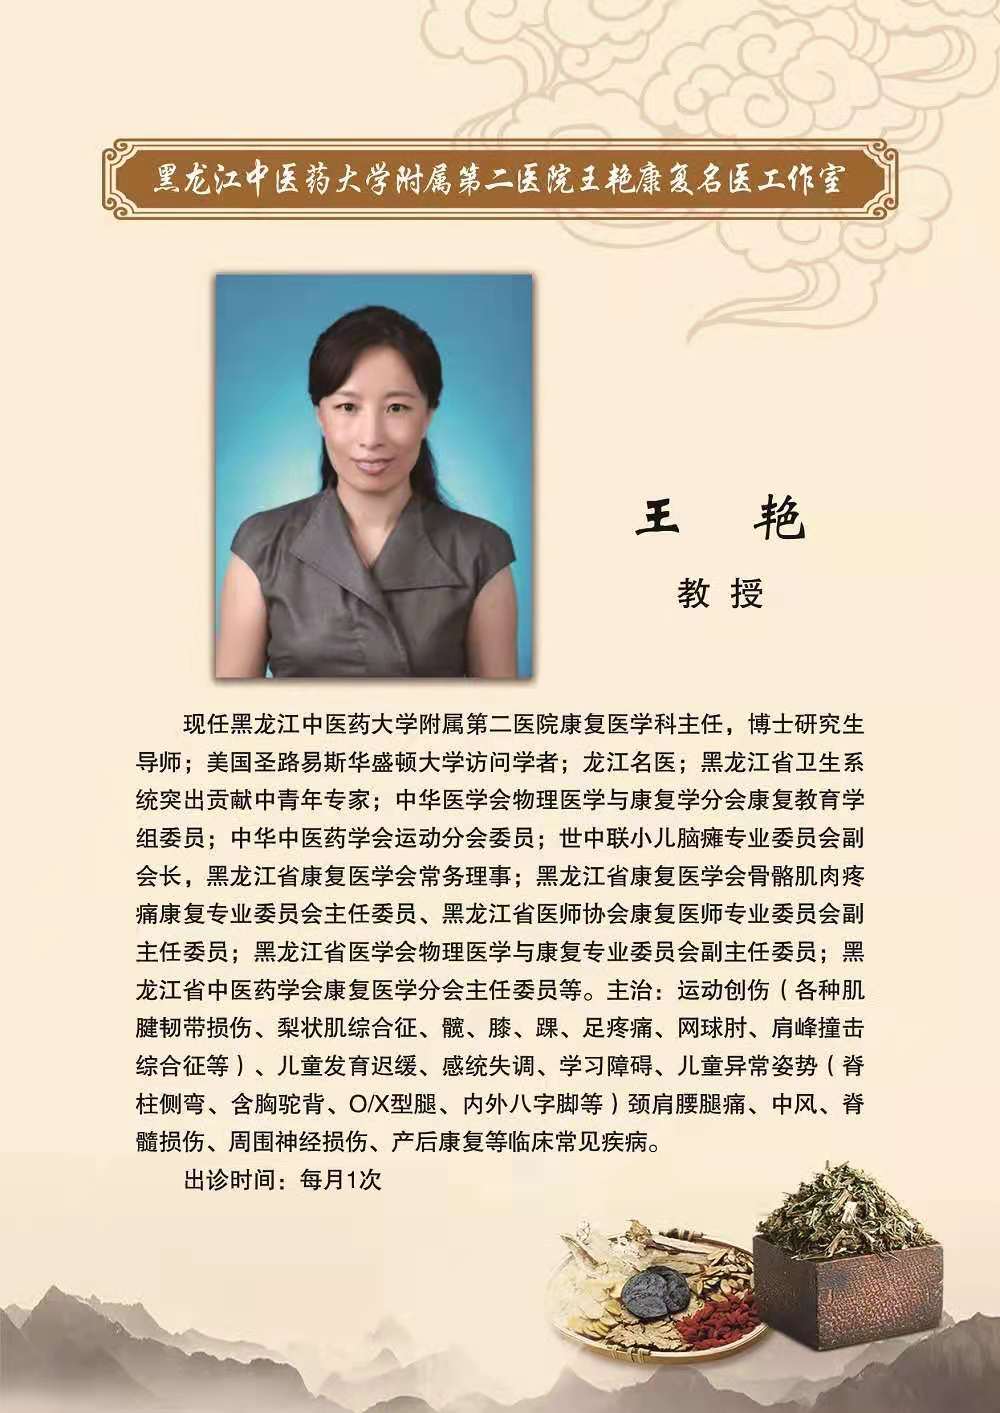 黑龙江中医药大学附属第二医院王艳康复名医工作室
王 艳
教 授
现任黑龙江中医药大学附属第二医院康复医学科主任，博士研究生
导师；美国圣路易斯华盛顿大学访问学者；龙江名医；黑龙江省卫生系
统突出贡献中青年专家；中华医学会物理医学与康复学分会康复教育学
组委员；中华中医药学会运动分会委员；世中联小儿脑瘫专业委员会副
会长，黑龙江省康复医学会常务理事；黑龙江省康复医学会骨骼肌肉疼
痛康复专业委员会主任委员、黑龙江省医师协会康复医师专业委员会副
主任委员；黑龙江省医学会物理医学与康复专业委员会副主任委员；黑
龙江省中医药学会康复医学分会主任委员等。主治：运动创伤（各种肌
腱韧带损伤、梨状肌综合征、髋、膝、踝、足疼痛、网球肘、肩峰撞击
综合征等）、儿童发育迟缓、感统失调、学习障碍、儿童异常姿势（脊
柱侧弯、含胸驼背、O/X型腿、内外八字脚等）颈肩腰腿痛、中风、脊
髓损伤、周围神经损伤、产后康复等临床常见疾病。
出诊时间：每月1次